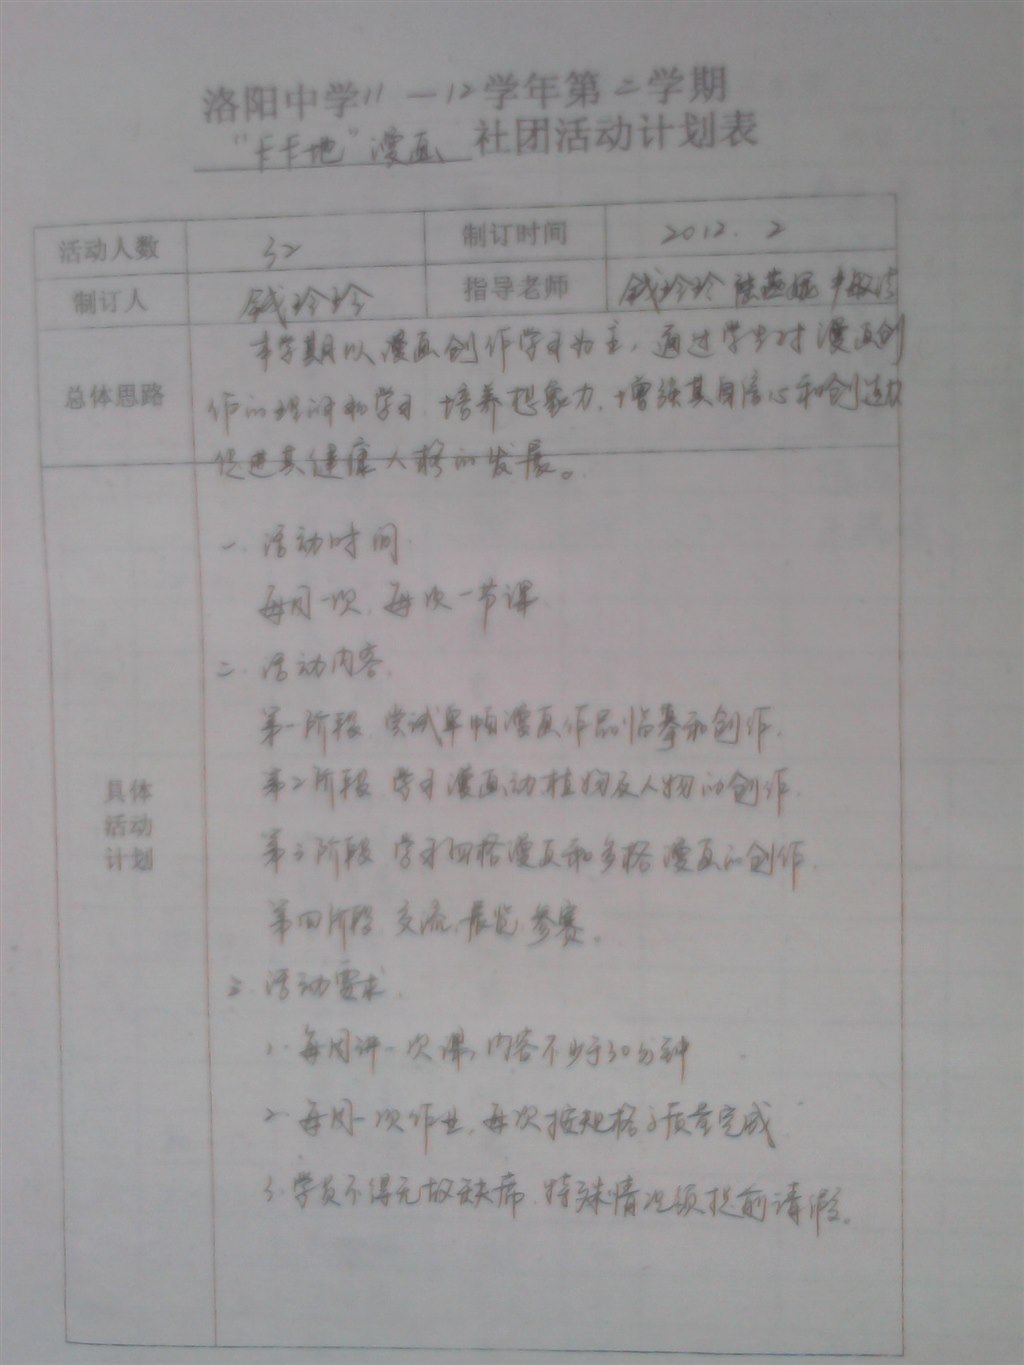 洛阳中学11－12学年第二学期
“卡卡地”漫画 社团活动计划表
活动人数 32 制订时间 2012.2
制订人 钱玲玲 指导老师 钱玲玲 陆燕妮
总体思路
本学期以漫画创作学习为主，通过学生对漫画创
作的理解和学习，培养想象力，增强其自信心和创造力
促进其健康人格的发展。
具体
活动
计划
一、活动时间
每周一次，每次一节课
二、活动内容
第一阶段 尝试单幅漫画作品临摹和创作.
第二阶段 学习漫画动植物及人物的创作.
第三阶段 学习四格漫画和多格漫画的创作.
第四阶段 交流、展览、参赛。
三、活动要求
1. 每周评一次课，内容不少于30分钟
2. 每周一次作业，每次按规格 质量完成
3. 学员不得无故缺席，特殊情况须提前请假。